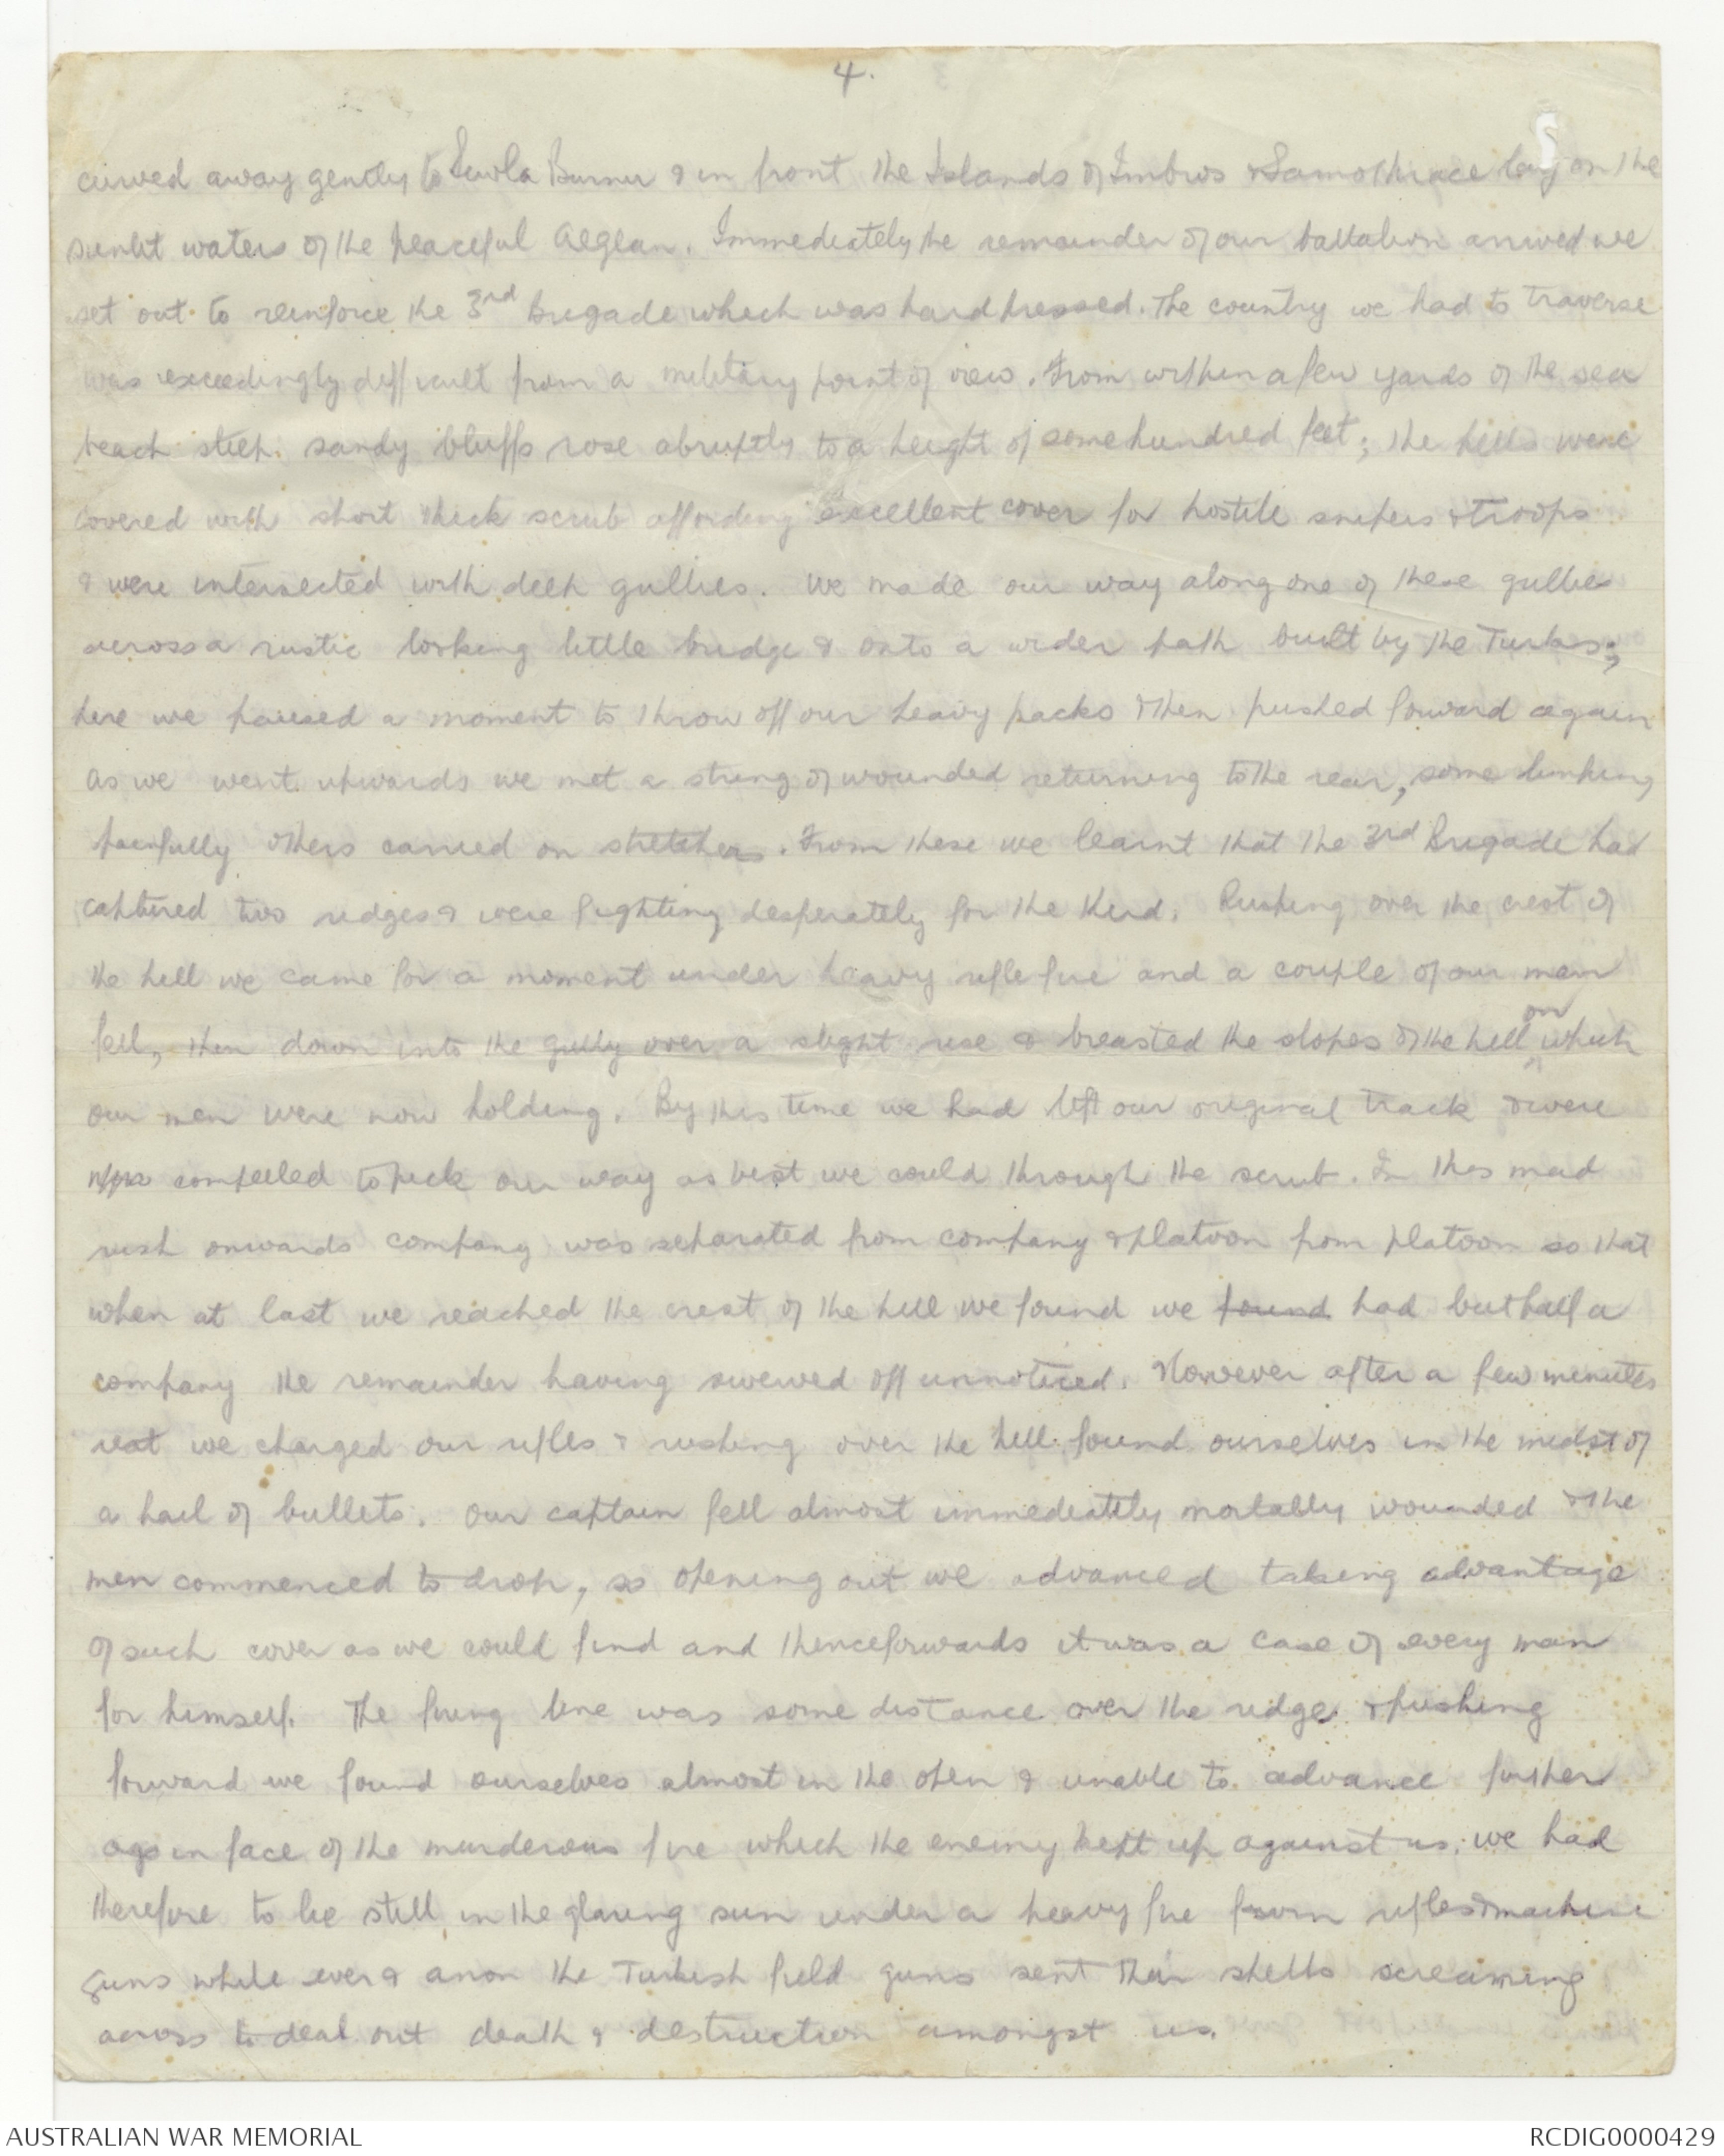 4.
curved away gently to Suvla Burnu & in front the Islands of Imbros & Samothrace lay on the
sunlit waters of the peaceful Aegean. Immediately the remainder of our battalion arrived we
set out to reinforce the 3rd Brigade which was hard pressed. The country we had to traverse
was exceedingly difficult from a military point of view. From within a few yards of the sea
beach steep sandy bluffs rose abruptly to a height of some hundred feet; the hills were
covered with short thick scrub affording excellent cover for hostile snipers & troops
& were intersected with deep gullies. We made our way along one of these gullies
across a rustic looking little bridge & onto a wider path built by the Turks;
here we paused a moment to throw off our heavy packs & then pushed forward again
As we went upwards we met a string of wounded returning to the rear, some limping
painfully others carried on stretchers. From these we learnt that the 3rd Brigade had
captured two ridges & were fighting desperately for the third. Rushing over the crest of
the hill we came for a moment under heavy rifle fire and a couple of our men
fell, then down into the gully over a slight rise & breasted the slopes of the hill on which
our men were now holding. By this time we had left our original track & were
compelled to pick our way as best we could through the scrub. In this mad
rush onwards company was separated from company & platoon from platoon so that
when at last we reached the crest of the hill we found we found had but half a
company the remainder having swerved off unnoticed. However after a few minutes
rest we charged our rifles & rushing over the hill found ourselves in the midst of
a hail of bullets. Our captain fell almost immediately mortally wounded & the
men commenced to drop, so opening out we advanced taking advantage
of such cover as we could find and thenceforwards it was a case of every man
for himself. The firing line was some distance over the ridge & pushing
forward we found ourselves almost in the open & unable to advance further
in face of the murderous fire which the enemy kept up against us. we had
therefore to lie still in the glaring sun under a heavy fire from rifles & machine
guns while ever & anon the Turkish field guns sent their shells screaming
across to deal out death & destruction amongst us.
AUSTRALIAN WAR MEMORIAL
RCDIG0000429